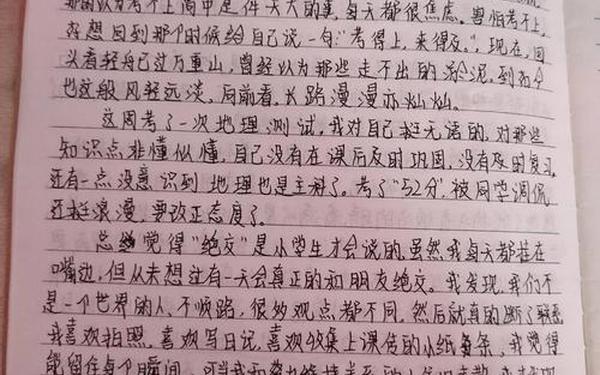 那时以为考不上高中是件天大的事，每天都很焦虑。害怕考不上，
好想回到那个时候给自己说一句："考得上，来得及。"现在，回
头看轻舟已过万重山，曾经以为那些走不出的淤泥，到如今
也这般风轻远淡，向前看，长路漫漫亦灿灿。
这周考了一次地理测试，我对自己挺无语的，对那些
知识点非懂似懂，自己没有在课后及时巩固，没有及时复习，
还有一点没意识到地理也是主科了。考了"52分"，被同学调侃
还挺浪漫，要改正态度了。
总觉得"绝交"是小学生才会说的，虽然我每天都挂在
嘴边，但从未想过有一天会真正的和朋友绝交。我发现，我们不
是一个世界的人，不顺路，很多观点都不同，然后就真的断了联系
我喜欢拍照，喜欢写日记，喜欢收集上课传的小纸条，我觉得
能留住每个瞬间